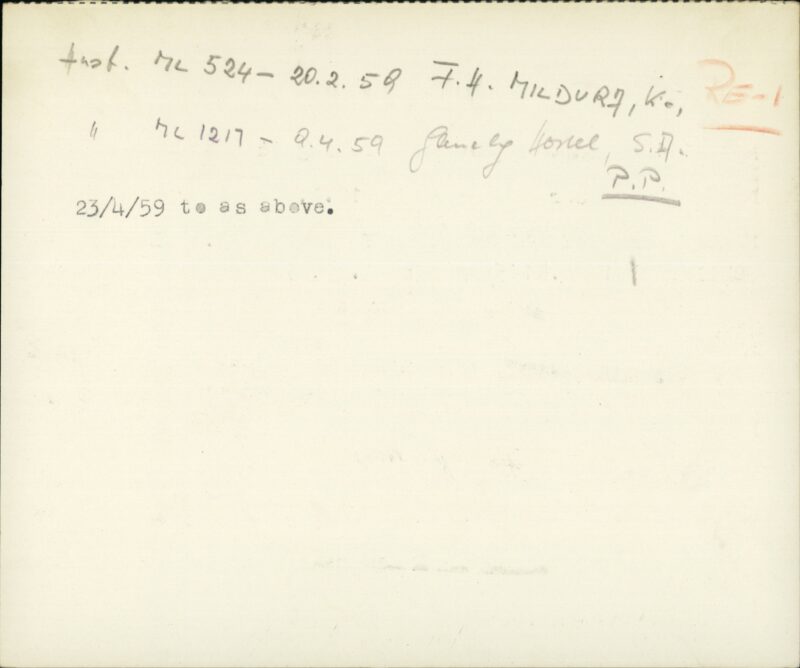 Aust. ML 524 - 20.2.59 F.H. MILDURA, K.,
RE-1
" ML 1217 - 9.4.59 Hostel, S.A.
P.P.
23/4/59 to as above.